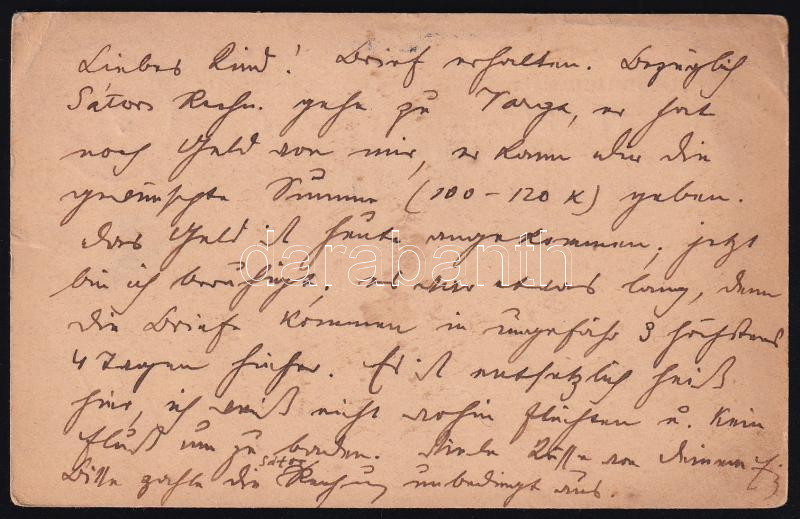 Liebes Kind! Brief erhalten. Bezüglich
Sátors Rechn. gehe zu Varga, er hat
noch Geld von mir, er kann dir die
gewünschte Summe (100–120 K) geben.
das Geld ist heute angekommen, jetzt
bin ich beruhigt, es war etwas lang, denn
die Briefe kommen in ungefähr 3 höchstens
4 Tagen hieher. Es ist entsetzlich heiß
hier, ich weiß nicht wohin flüchten u. kein
Fluß um zu baden. Viele Küsse von deinem
Bitte zahle die Sátor Rechnung unbedingt aus.
darabanth